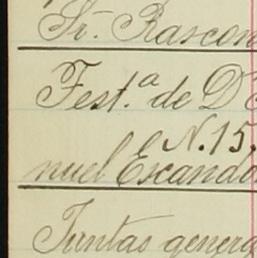 Sr. Rascon
Fest.ª de D
N. 15.
nuel Escando
Juntas genera